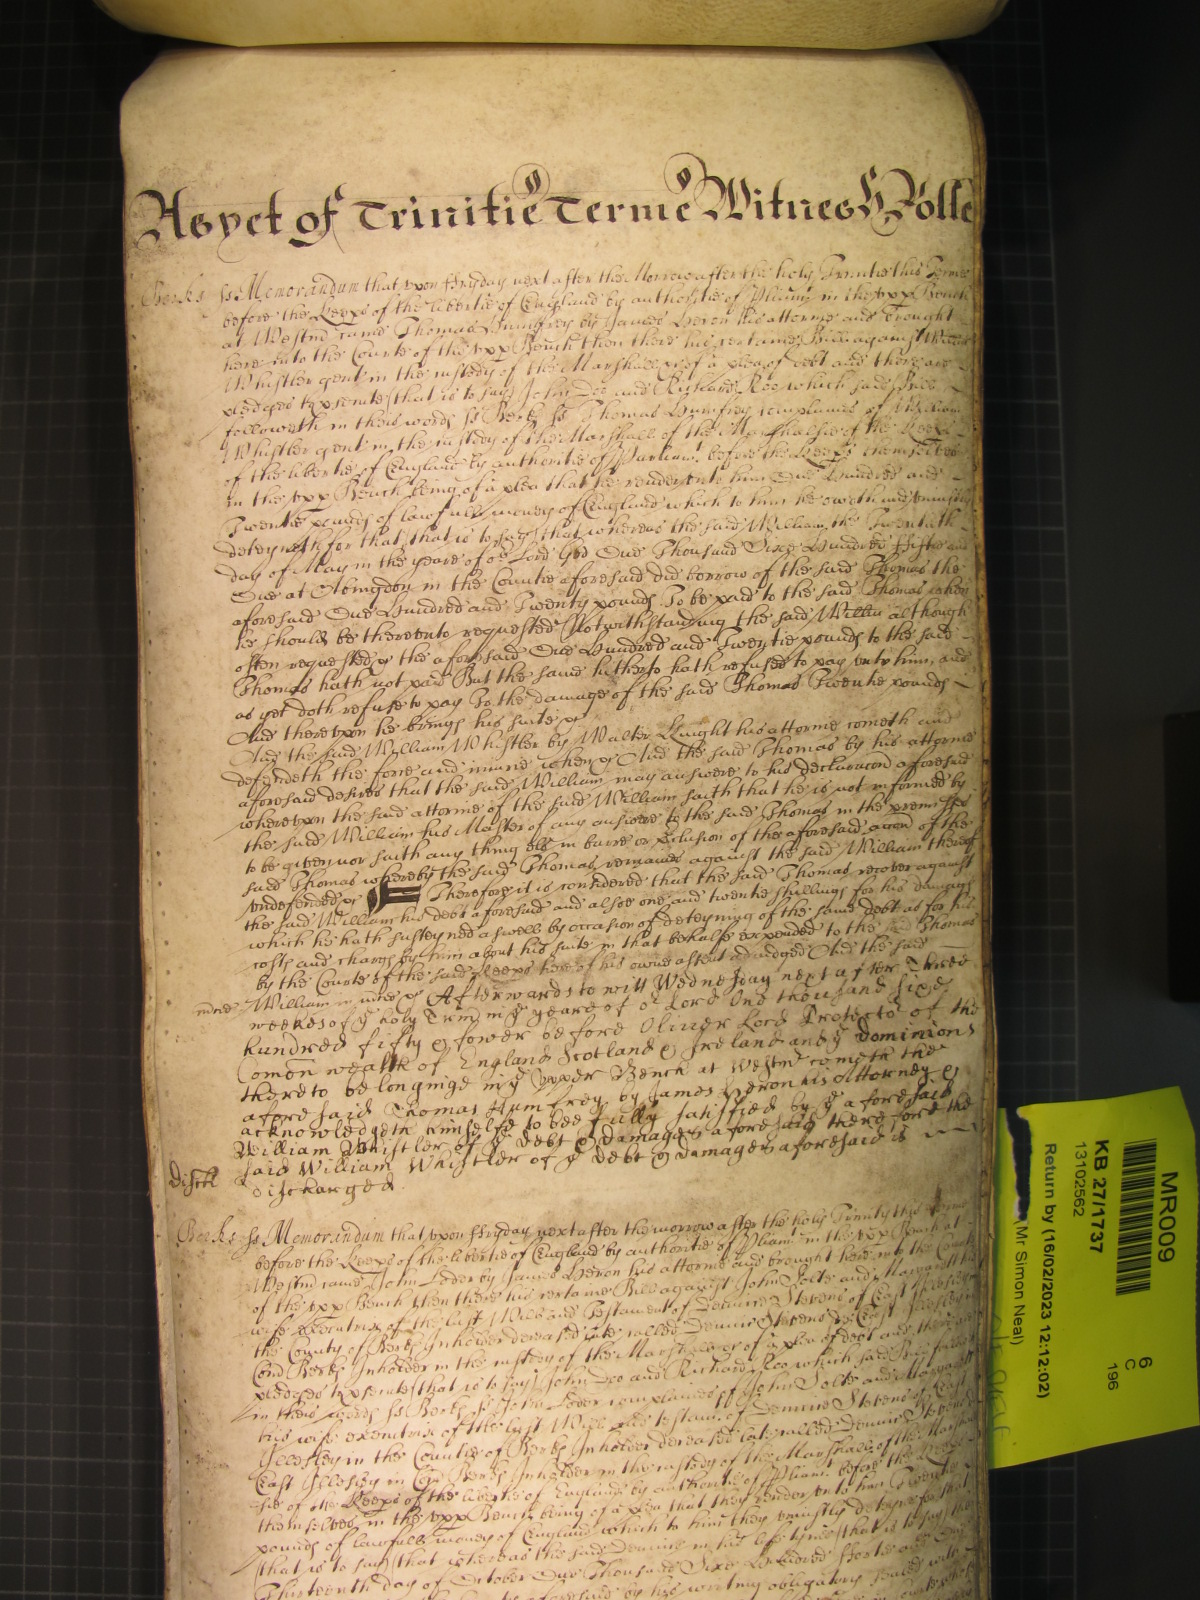 As yet of Trinitie Terme Witnes H Rolle
Berks ss Memorandum that upon Fryday next after the Morrow after the holy Trinitie this Terme
before the Keeps of the libertie of England by authoritie of Pliamt in the upp Bench
at Westmr came Thomas Humfrey by James Heron his attorne and brought
here into the Courte of the upp Bench then there his certaine Bill against William
Whistler gent in the custody of the Marshall &c of a plea of debt and there are
pledges to psecute that is to say John Doe and Richard Roe which said Bill
followeth in theis words ss Berks ss Thomas Humfrey complaines of William
Whistler gent in the custody of the Marshall of the Marshalsie of the Keeps
of the libertie of England by authoritie of Parliamt before the Keeps themselves
in the upp Bench being of a plea that he render unto him One Hundred and
Twentie pounds of lawfull money of England which to him he oweth and uniustly
deteyneth for that that is to say that whereas the said William the Twentieth
day of May in the yeare of or Lord God One Thousand Sixe Hundred Fiftie and
One at Abingdon in the Countie aforesaid did borrow of the said Thomas the
aforesaid One Hundred and Twenty pounds To be paid to the said Thomas when
he should be thereunto requested Notwithstanding the said Willm although
often requested &c the aforesaid One Hundred and Twentie pounds to the said
Thomas hath not paid But the same hitherto hath refused to pay unto him, and
as yet doth refuse to pay To the damage of the said Thomas Twentie pounds
And thereupon he brings his suite &c
And the said William Whistler by Walter Knight his attorne cometh and
defendeth the force and iniurie when &c And the said Thomas by his attorne
aforesaid desires that the said William may answere to his declaracon aforesaid
whereupon the said attorne of the said William saith that he is not informed by
the said William his Master of any answere to the said Thomas in the premisses
to be given nor saith any thing els in barre or pclusion of the aforesaid accon of the
said Thomas whereby the said Thomas remaines against the said William thereof
undefended &c Therefore it is considered that the said Thomas recover against
the said William his debt aforesaid and alsoe one and twentie shillings for his damages
which he hath susteyned aswell by occasion of deteyning of the same debt as for his
costs and charges by him about his suite in that behalfe expended to the said Thomas
by the Courte of the said Keeps here of his owne assent adiudged And the said
mcie William in mcie &c Afterwards to witt Wednesday next after Three
weekes of ye holy Trin in ye yeare of or Lord One thousand Sixe
hundred fifty & fower before Oliver Lord Protector of the
Comon wealth of England Scotland & Ireland and ye Dominions
thereto belonginge in ye upper Bench at Westmr cometh the
aforesaid Thomas Humfrey by James Heron his Attorney &
acknowledgeth himselfe to bee fully satisfied by ye aforesaid
William Whistler of ye debt & damages aforesaid therefore the
said William Whistler of ye debt & damages aforesaid is
disch discharged
Berks ss Memorandum that upon Fryday next after the morrow after the holy Trinity this Terme
before the Keeps of the libertie of England by authoritie of Pliamt in the upp Bench at
Westmr came John Loder by James Heron his attorne and brought here into the Courte
of the upp Bench then there his certaine Bill against John and Margarett his
wife executrix of the last Will and Testament of Dennis Stevens of East Illesley in
the County of Berks Inholder deceased late called Dennis Stevens of East Illesley in
Com Berks Inholder in the custody of the Marshall &c of a plea of debt and there are
pledges to psecute that is to say John Doe and Richard Roe which said Bill followeth
in theis words ss Berks ss John Loder complaines of John and Margarett
his wife executrix of the last Will and testamt of Dennis Stevens of East
Illesley in the Countie of Berks Inholder deceased late called Dennis Stevens of
East Illesley in Com Berks Inholder in the custody of the Marshall of the Marshal
sie of the Keeps of the libertie of England by authoritie of Pliamt before the Keeps
themselves in the upp Bench being of a plea that they render unto him Twentie
pounds of lawfull money of England which to him they uniustly deteyne for that
that is to say that whereas the said Dennis in his life tyme that is to say the
Thirteenth day of October One Thousand Sixe Hundred Fortie and
aforesaid by his writing obligatory sealed with
MR009
KB 27/1737
13102562
6
C
196
Return by (16/02/2023 12:12:02)
(Mr Simon Neal)